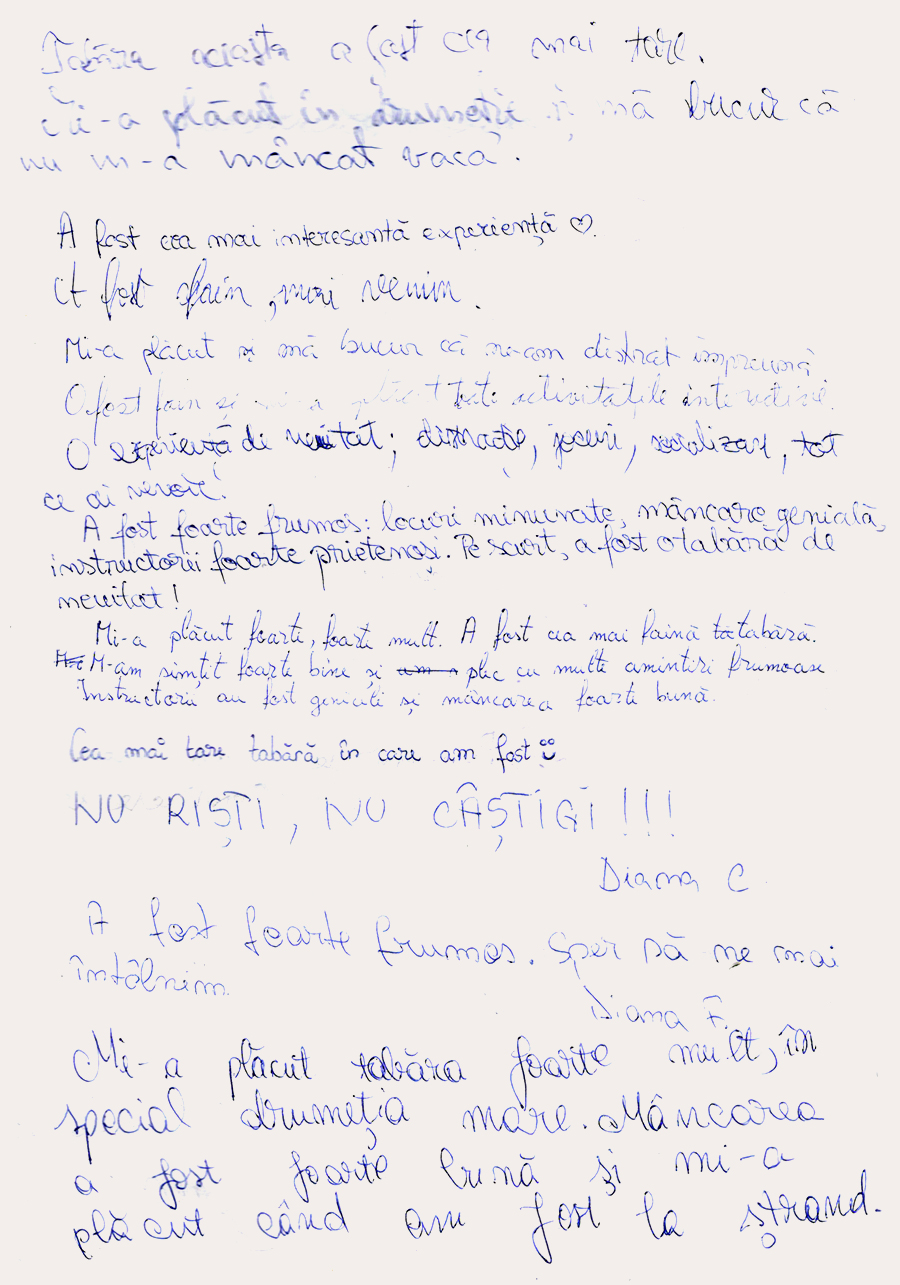 Tabăra aceasta a fost cea mai tare.
Mi-a plăcut în drumeție și mă bucur că
nu m-a mâncat vaca.
A fost cea mai interesantă experiență ♡.
A fost fain, mai venim.
Mi-a plăcut și mă bucur că ne-am distrat împreună
O fost fain și mi-a plăcut toate activitățile
O experiență de neuitat; distracție, jocuri, socializare, tot
ce ai nevoie!
A fost foarte frumos: locuri minunate, mâncare genială,
instructorii foarte prietenoși. Pe scurt, a fost o tabără de
neuitat!
Mi-a plăcut foarte, foarte mult. A fost cea mai faină tatabără.
M-am simțit foarte bine și plec cu multe amintiri frumoase
Instructorii au fost geniali și mâncarea foarte bună.
Cea mai tare tabără în care am fost
NU RIȘTI, NU CÂȘTIGI!!!
Diana C
A fost foarte frumos. Sper să ne mai
întâlnim.
Diana F.
Mi-a plăcut tabăra foarte mult, în
special drumeția mare. Mâncarea
a fost foarte bună și mi-a
plăcut când am fost la ștrand.